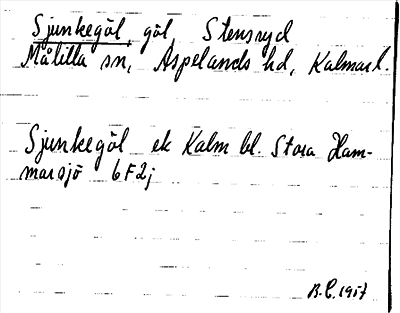 Sjunkegöl, göl Stensryd
Målilla sn, Aspelands hd, Kalmar l.
Sjunkegöl ek Kalm bl. Stora Ham-
marsjö 6F2j
B.E. 1957